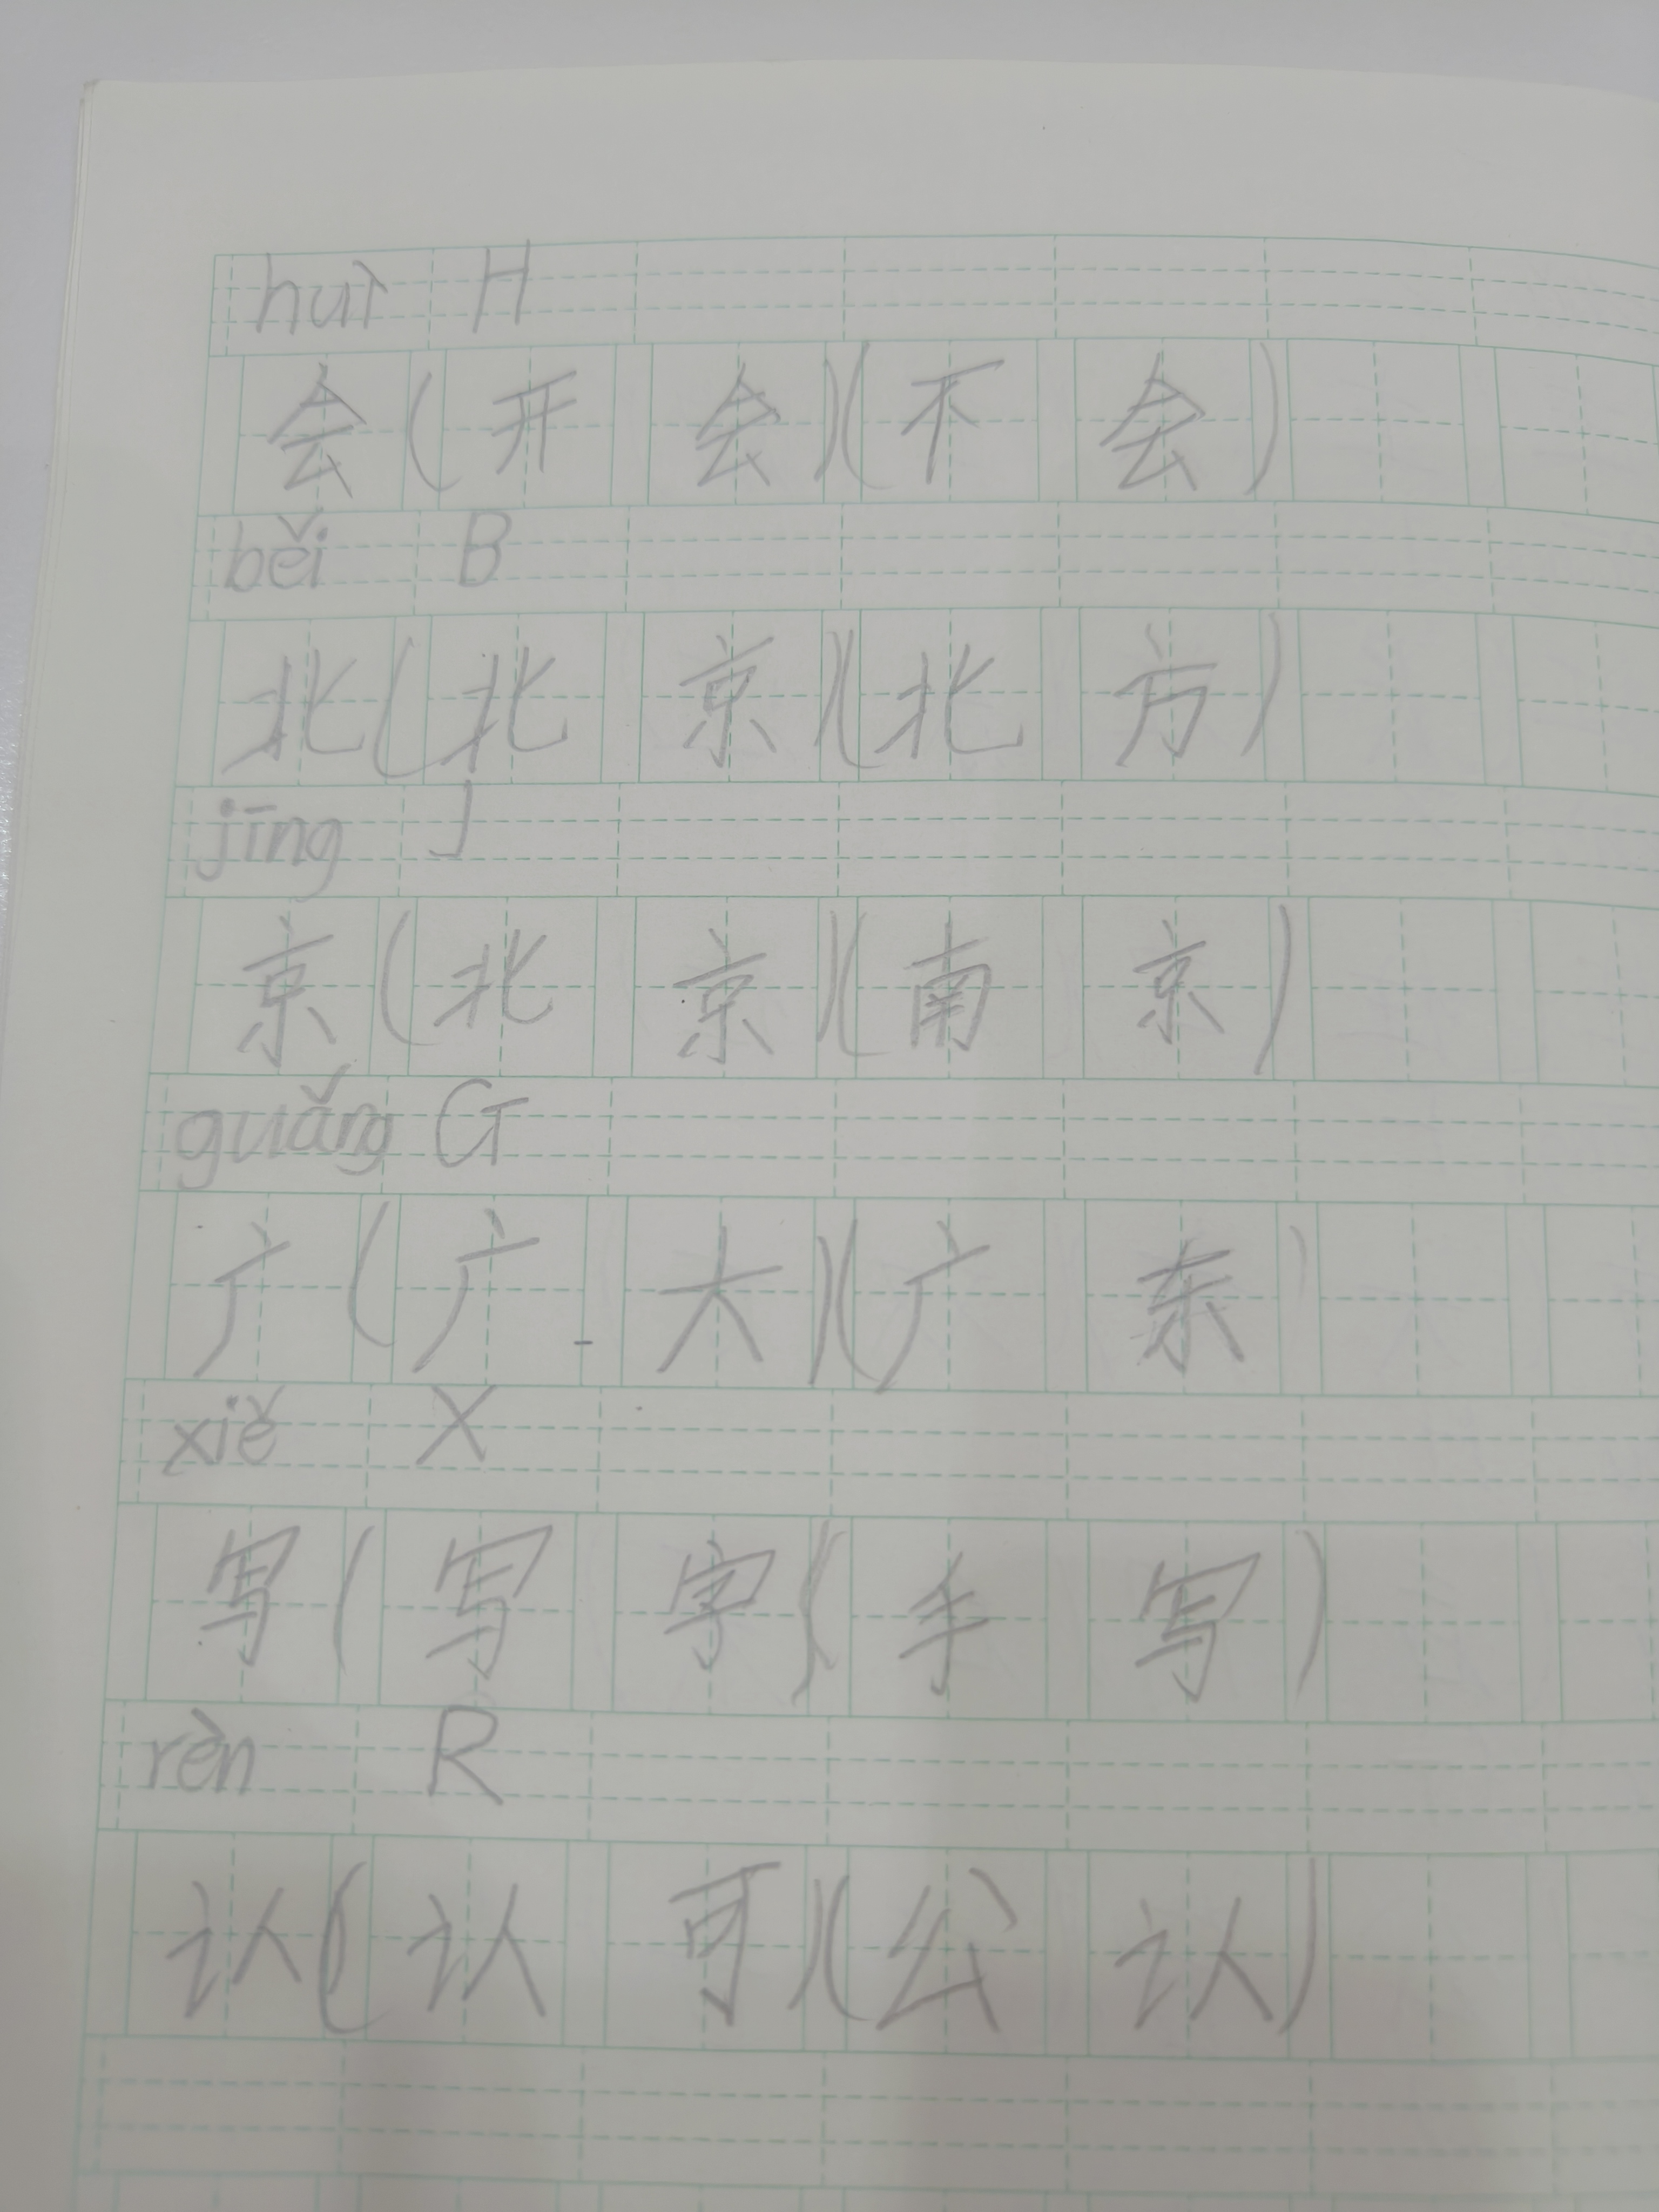 huì H
会(开会)(不会)
běi B
北(北京)(北方)
jīng J
京(北京)(南京)
guǎng G
广(广大)(广东)
xiě X
写(写字)(手写)
rèn R
认(认可)(公认)